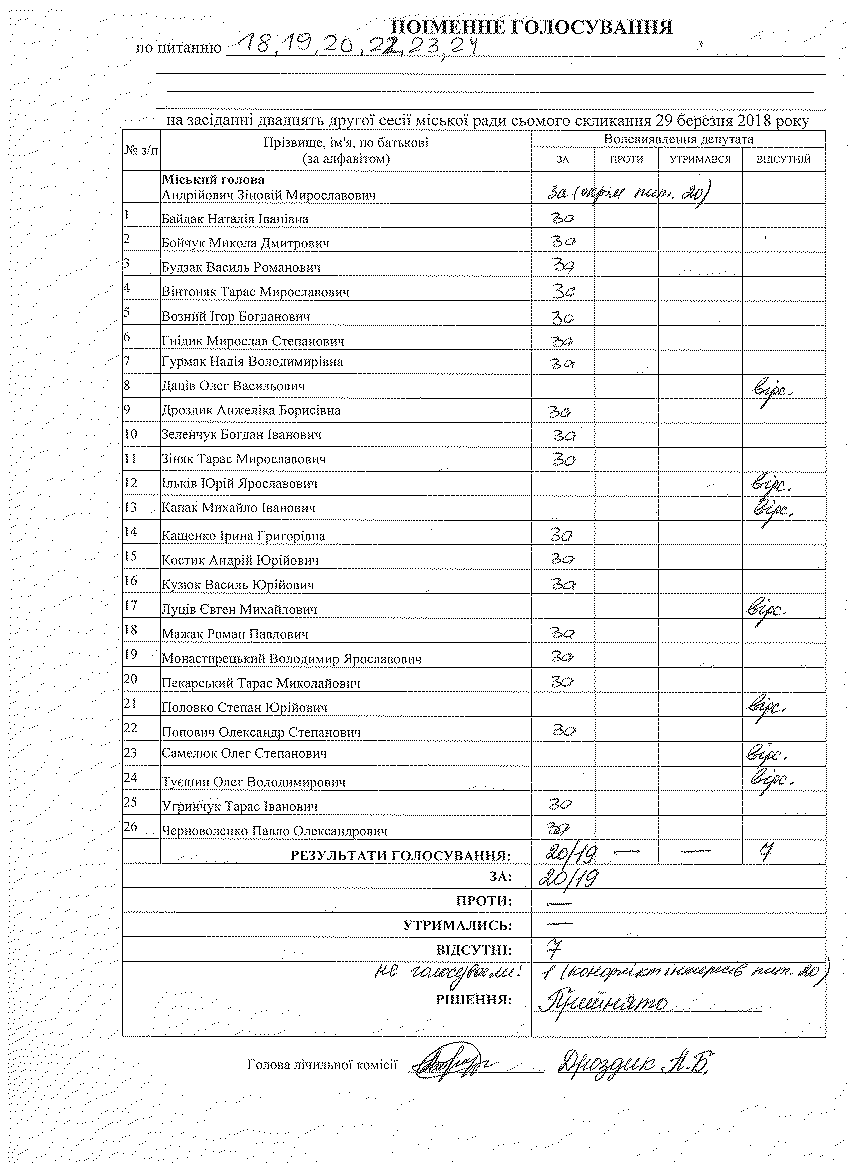 ПОІМЕННЕ ГОЛОСУВАННЯ
по питанню 18,19,20,22,23,24
на засіданні двадцять другої сесії міської ради сьомого скликання 29 березня 2018 року
№ з/п Прізвище, ім'я, по батькові (за алфавітом) Волевиявлення депутата
ЗА ПРОТИ УТРИМАВСЯ ВІДСУТНІЙ
Міський голова
Андрійович Зіновій Мирославович за (окрім пит. 20)
1 Байдак Наталія Іванівна за
2 Бойчук Микола Дмитрович за
3 Будзак Василь Романович за
4 Вінтоняк Тарас Мирославович за
5 Возний Ігор Богданович за
6 Гнідик Мирослав Степанович за
7 Гурмак Надія Володимирівна за
8 Даців Олег Васильович відс.
9 Дроздик Анжеліка Борисівна за
10 Зеленчук Богдан Іванович за
11 Зіняк Тарас Мирославович за
12 Ільків Юрій Ярославович відс.
13 Капак Михайло Іванович відс.
14 Кащенко Ірина Григорівна за
15 Костик Андрій Юрійович за
16 Кузюк Василь Юрійович за
17 Луців Євген Михайлович відс.
18 Мажак Роман Павлович за
19 Монастирецький Володимир Ярославович за
20 Пекарський Тарас Миколайович за
21 Половко Степан Юрійович відс.
22 Попович Олександр Степанович за
23 Самелюк Олег Степанович відс.
24 Туєшин Олег Володимирович відс.
25 Угринчук Тарас Іванович за
26 Черноволенко Павло Олександрович за
РЕЗУЛЬТАТИ ГОЛОСУВАННЯ: 20/19 — — 7
ЗА: 20/19
ПРОТИ: —
УТРИМАЛИСЬ: —
ВІДСУТНІ: 7
не голосували: 1 (конфлікт інтересів пит. 20)
РІШЕННЯ: Прийнято
Голова лічильної комісії Дроздик А.Б.